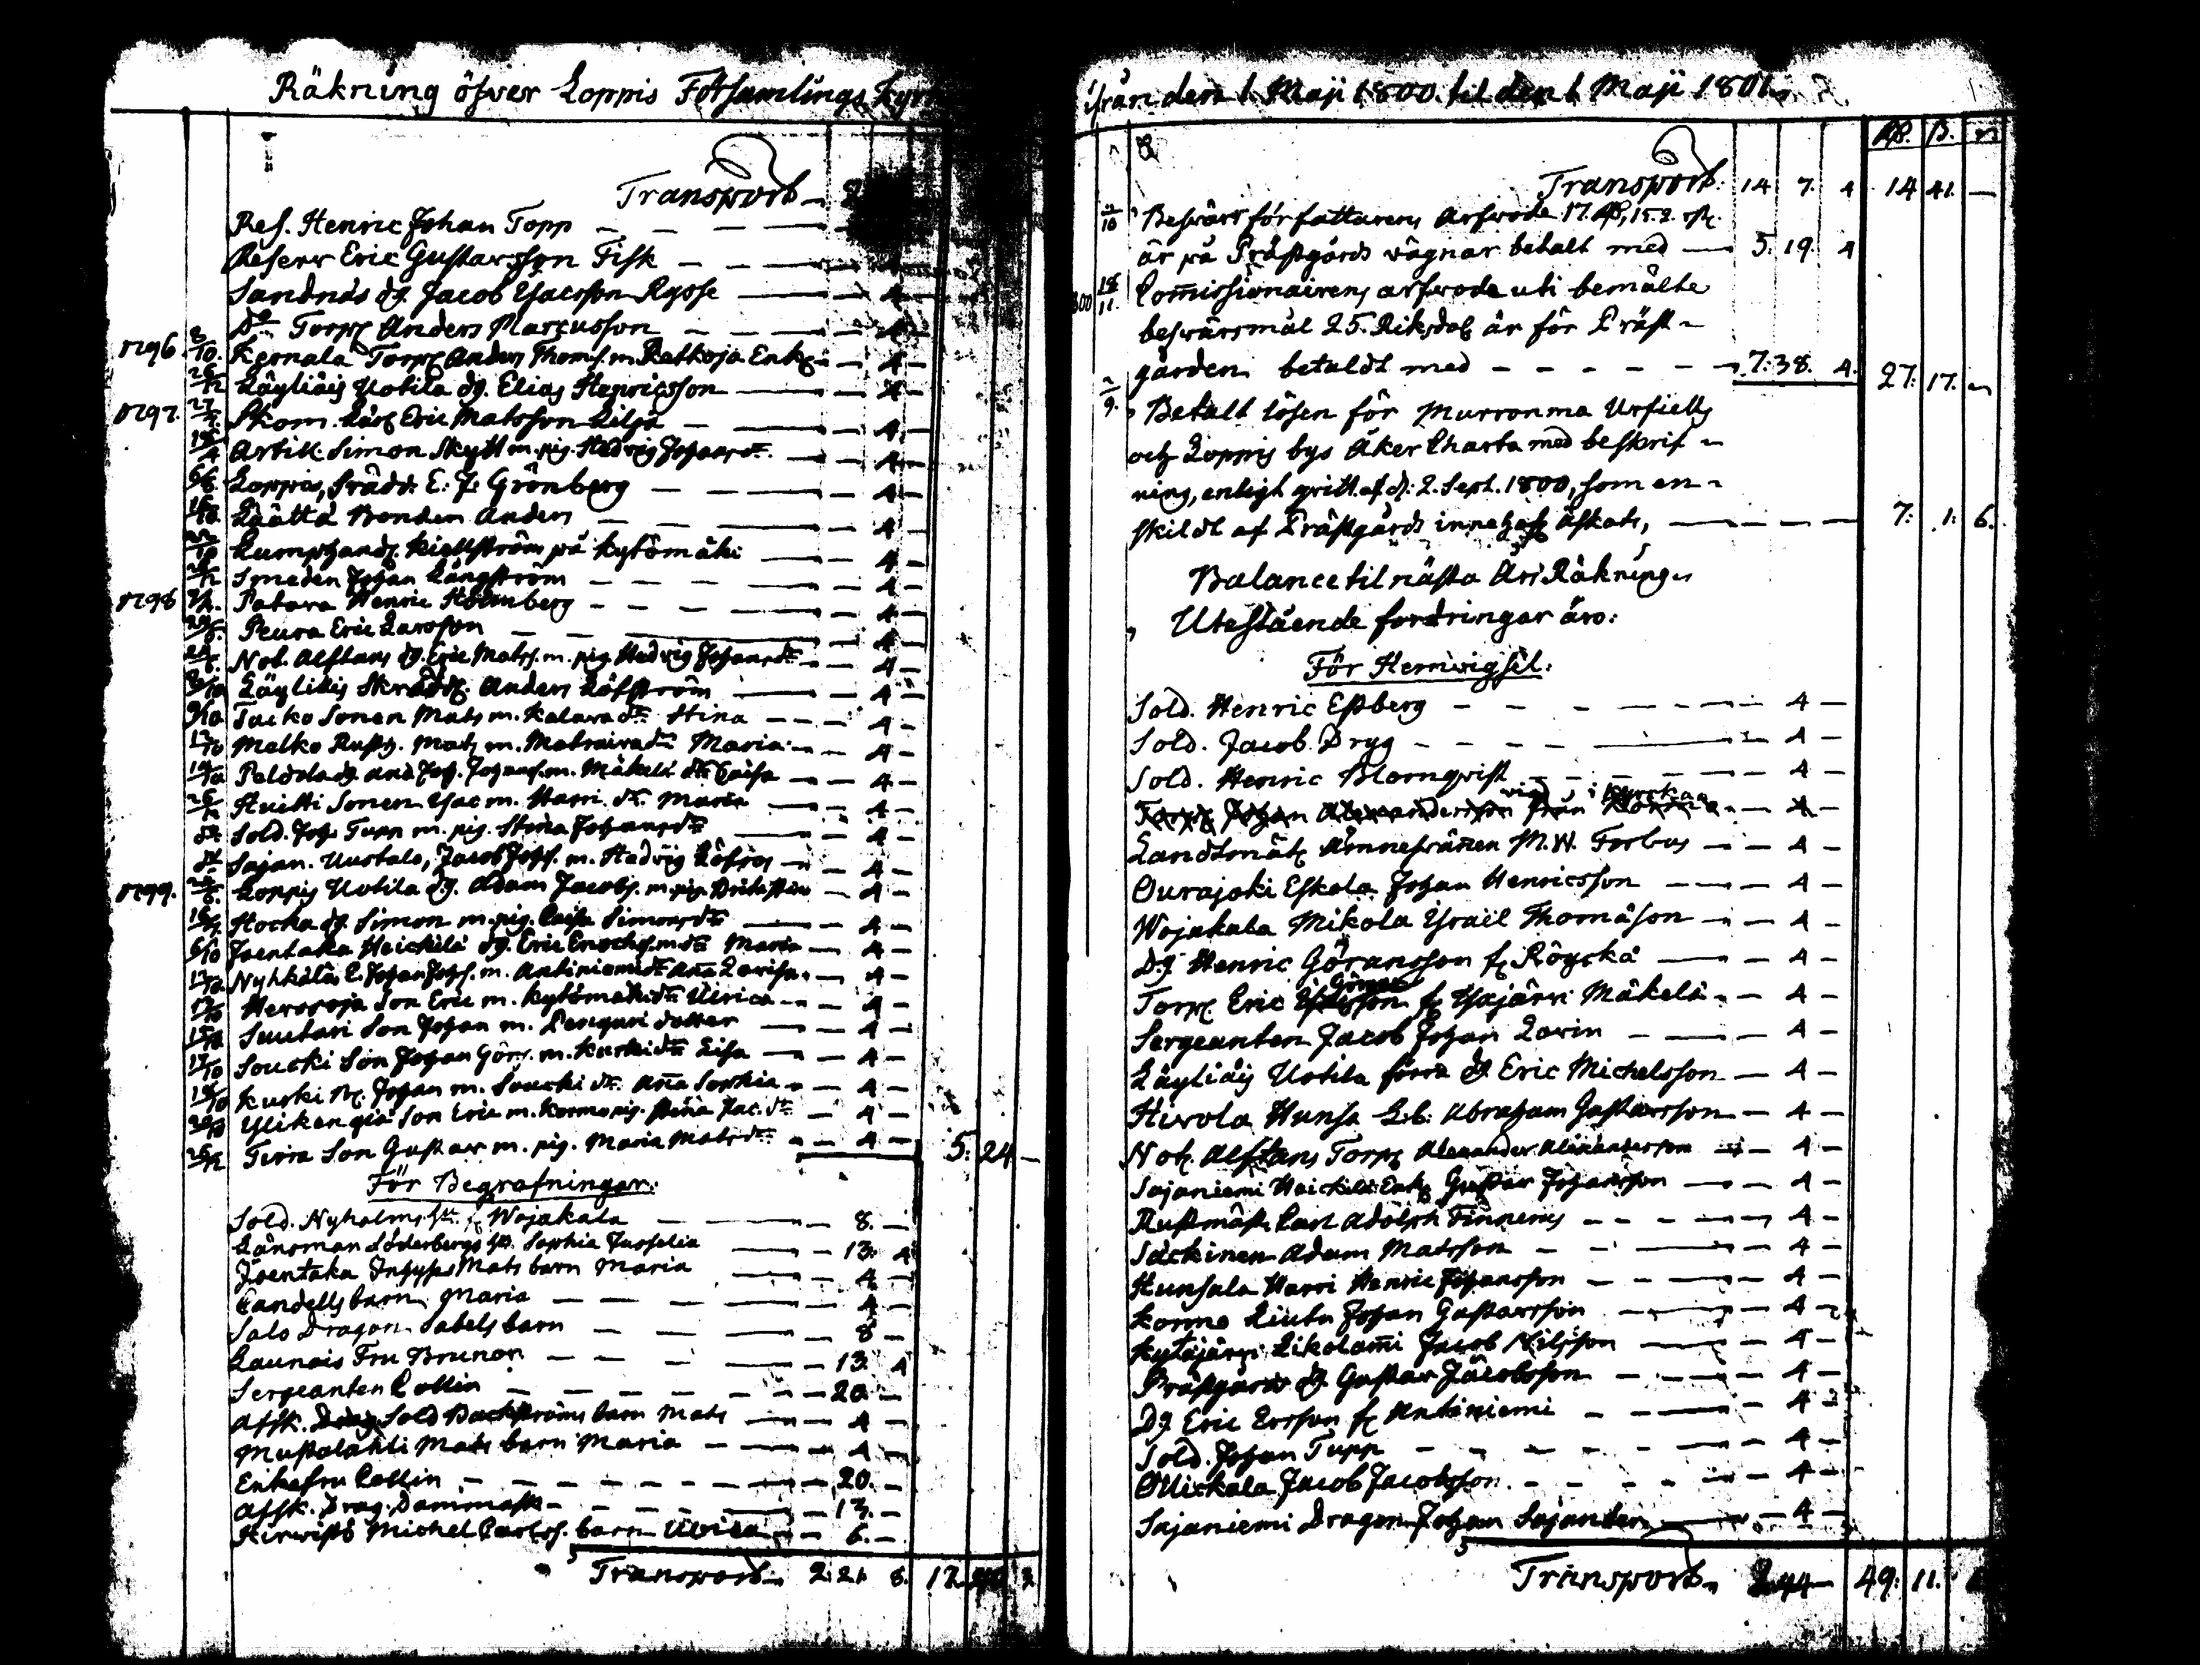 Räkning öfver Loppis Församlings Kyr
Transport 2
Res. Henric Johan Topp 4
Reserv Eric Gustafsson Fisk 4
Sandnäs dg. Jacob Jsacsson Rysse 4
Do Torp. Anders Marcusson 4
1796 3/10 Kernala Torp. Anders Thoms. m. Ratkoja Enk. 4
26/12 Läyliäis Uotila dg. Elias Henricsson 4
1797. 27/2 Skom. Lär. Eric Matsson Lilja 4
18/4 Artill. Simon Skytt m. pig. Hedvig Johansdr. 4
6/6 Loppis, Srädd. E. J. Grönberg 4
Läättä Bonden Anders 4
22/10 Lumphand. Kiellström på Kytömäki 4
28/12 Smeden Johan Långström 4
1798 Patara Henric Holmberg 4
Peura Eric Larsson 4
Not. Alftans dg. Eric Mats. m. pig. Hedvig Johansdr. 4
Läyliäis Skrädd. Anders Löfström 4
9/10 Tacko Sonen Mats m. Kalava dr. Stina 4
12/10 Melko Rusth. Mats m. Matraivadr. Maria 4
14/10 Peldola dg. And. Joh. Johans. m. Mäkelä dr. Caisa 4
26/12 Huitti Sonen Jsac m. Harri dr. Maria 4
do. Sold. Joh. Tupp m. pig. Stina Johansdr. 4
do. Sajan. Uustalo, Jacob Jos. m. Hedvig Löfros 4
1799. Loppis Uotila dg. Adam Jacobs. m. pig. 4
Hocka dg. Simon m. pig. Caisa Simonsdr. 4
6/10 Joentaka Heickilä dg. Eric Enochs. m. dr. Maria 4
13/10 Nyhkälä L. Johan Johs. m. Antiniemi dr. Anna Lovisa 4
13/10 Hersoja Son Eric m. Kytömäki dr. Ulrica 4
15/10 Suutari Son Johan m. Penguri dotter 4
17/10 Soucki Son Johan Görs. m. Kuski dr. Lisa 4
18/10 Kuski Johan m. Soucki dr. Anna Sophia 4
30/10 Ylikengiä Son Eric m. Kormo pig. Stina Jac. dr. 4
26/12 Tirra Son Gustav m. pig. Maria Matsdr. 4 5. 24
För Begrafningar:
Sold. Nyholms Wojakala 8.
Länsman Söderbergs Sophia Jusselia 13. 4
Joentaka Inhyses Mats barn Maria 4
Candells barn Maria 4
Salo Dragon Sabels barn 8
Launois Fru Brunon 13. 4
Sergeanten Collin 20.
Afsk. Sold Backströms barn Mats 4
Mustalahti Mats barn Maria 4
Enkefru Collin 20.
Afsk. Drag. Dammask 13.
Hirwistö Michel Carlss. barn Ulrica 6.
Transport 2. 21. 8. 12.
ifrån den 1. Maji 1800. til den 1 Maji 1801.
Transport. 14 7. 4 14 41.
2/10 Beswärs författarens arfwode 17. 15. 2.
är på Prästgårds vägnar betalt med 5. 19. 4
18/11 Commissionairens arfwode uti bemälte
beswärsmål 25. Riksdal. är för Präst-
gården betaldt med 7: 38. 4. 27: 17.
2/9. Betalt lösen för Murronma Urfiells
och Loppis bys Åker Charta med beskrif-
ning, enligt qvitt. af d: 2. Sept. 1800, som en-
skildt af Prästgårds innehaf. åskats, 7. 1. 6.
Balance til nästa Års Räkning.
Utestående fordringar äro:
För Hemvigsel:
Sold. Henric Essberg 4
Sold. Jacob Dryg 4
Sold. Henric Blomqvist 4
Torp. Johan Alexandersson från 4
Landtmät. Ämnesvännen M. W. Forbus 4
Ourajoki Eskola Johan Henricsson 4
Wojakala Mikola Jsraël Thomason 4
Dg Henric Göransson f. Röyckä 4
Torp. Eric Görans f. Ysajärvi Mäkelä 4
Sergeanten Jacob Johan Lavin 4
Läyliäis Uotila förra dg. Eric Michelsson 4
Hirvola Hunsa L.b. Abraham Gustavsson 4
Not. Alftans Torp. Alexander Alexandersson 4
Sajaniemi Heickilä Enk. Gustav Johansson 4
Rustmäst. Carl Adolph Finneng 4
Säckinen Adam Matsson 4
Hunsala Harri Henric Johansson 4
Kormo Liutu Johan Gustavsson 4
Kytäjärvi Likolami Jacob Nilsson 4
Prästgårds dg. Gustav Jacobsson 4
Dg. Eric Ersson f. Antiniemi 4
Sold. Johan Tupp 4
Ollickala Jacob Jacobsson 4
Sajaniemi Dragon Johan Sajander 4
Transport 2 44 49. 11.